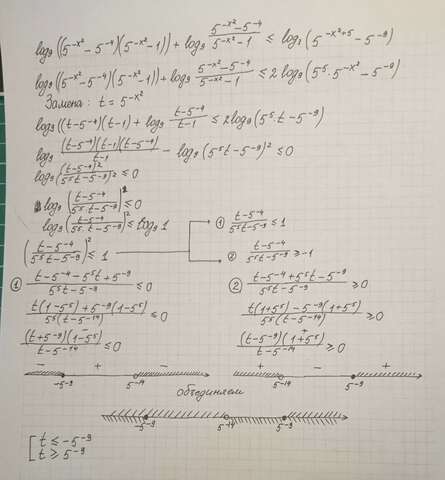 log₉((5^{-x²}-5⁻⁴)(5^{-x²}-1)) + log₉ (5^{-x²}-5⁻⁴)/(5^{-x²}-1) ≤ log₃(5^{-x²+5}-5⁻⁹)
log₉((5^{-x²}-5⁻⁴)(5^{-x²}-1)) + log₉ (5^{-x²}-5⁻⁴)/(5^{-x²}-1) ≤ 2log₉(5⁵·5^{-x²}-5⁻⁹)
Замена: t = 5^{-x²}
log₉((t-5⁻⁴)(t-1) + log₉ (t-5⁻⁴)/(t-1) ≤ 2log₉(5⁵·t-5⁻⁹)
log₉ (t-5⁻⁴)(t-1)(t-5⁻⁴)/(t-1) - log₉(5⁵t-5⁻⁹)² ≤ 0
log₉ (t-5⁻⁴)²/(5⁵·t-5⁻⁹)² ≤ 0
log₉ ((t-5⁻⁴)/(5⁵·t-5⁻⁹))² ≤ 0
log₉ ((t-5⁻⁴)/(5⁵·t-5⁻⁹))² ≤ log₉1 ① (t-5⁻⁴)/(5⁵t-5⁻⁹) ≤ 1
((t-5⁻⁴)/(5⁵t-5⁻⁹))² ≤ 1 ② (t-5⁻⁴)/(5⁵t-5⁻⁹) ≥ -1
① (t-5⁻⁴-5⁵t+5⁻⁹)/(5⁵t-5⁻⁹) ≤ 0 ② (t-5⁻⁴+5⁵t-5⁻⁹)/(5⁵t-5⁻⁹) ≥ 0
(t(1-5⁵)+5⁻⁹(1-5⁵))/(5⁵(t-5⁻¹⁴)) ≤ 0 (t(1+5⁵)-5⁻⁹(1+5⁵))/(5⁵(t-5⁻¹⁴)) ≥ 0
- +
((t+5⁻⁹)(1-5⁵))/(t-5⁻¹⁴) ≤ 0 ((t-5⁻⁹)(1+5⁵))/(t-5⁻¹⁴) ≥ 0
- + - + - +
-5⁻⁹ 5⁻¹⁴ 5⁻¹⁴ 5⁻⁹
объединяем
-5⁻⁹ 5⁻¹⁴ 5⁻⁹
[ t ≤ -5⁻⁹
t ≥ 5⁻⁹